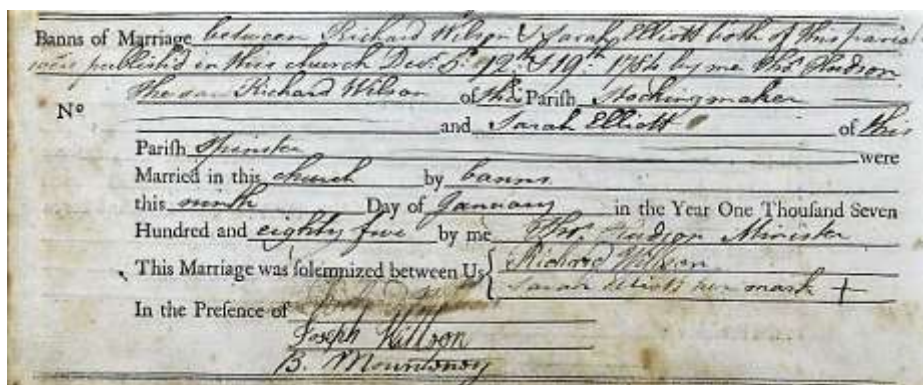 Banns of Marriage between Richard Wilson & Sarah Elliott both of this parish
were published in this church Decr. 5th 12th & 19th 1784 by me Thos. Hudson
No The said Richard Wilson of this Pariſh Stockingmaker
and Sarah Elliott of this
Pariſh Spinster were
Married in this church by banns
this ninth Day of January in the Year One Thouſand Seven
Hundred and eighty five by me Thos. Hudson Minister
This Marriage was ſolemnized between Us Richard Willson
Sarah Elliott her mark +
In the Preſence of
Joseph Willson
B. Mountonoy